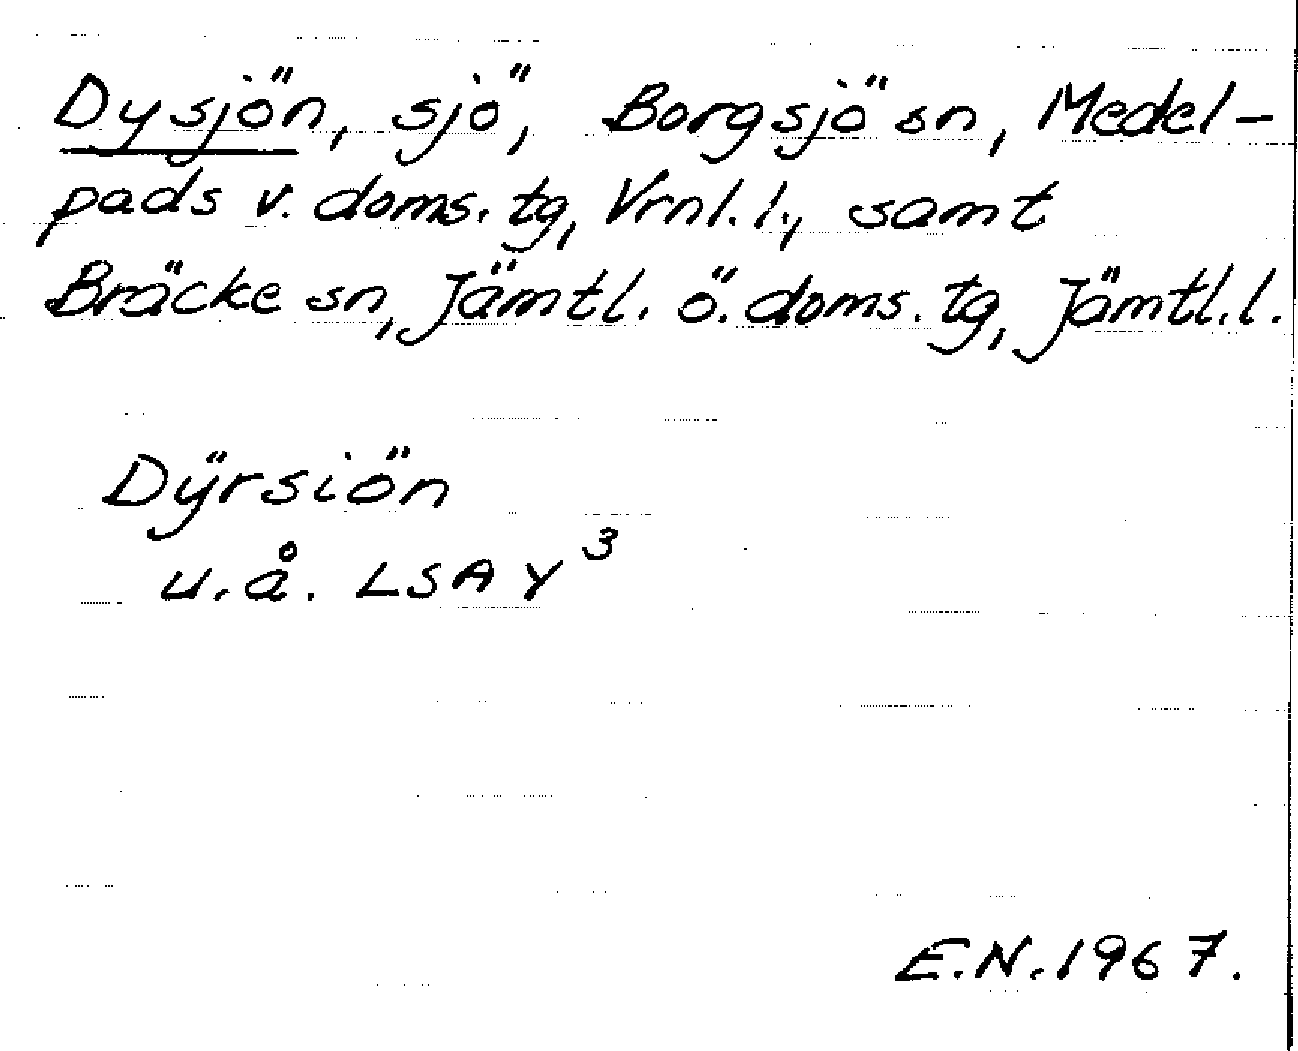 Dysjön, sjö, Borgsjö sn, Medel-
pads v. doms. tg, Vrnl. l., samt
Bräcke sn, Jämtl. ö. doms. tg, Jämtl. l.
Dÿrsiön
u. å. LSA Y³
E.N. 1967.